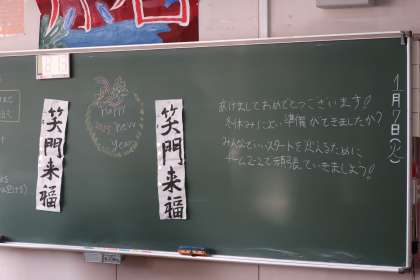 1月7日(火)
あけましておめでとうございます!
冬休みによい準備ができましたか?
みんなでいいスタートを迎えるために
チーム2-2で頑張っていきましょう!
笑門来福
Happy
new
year
笑門来福